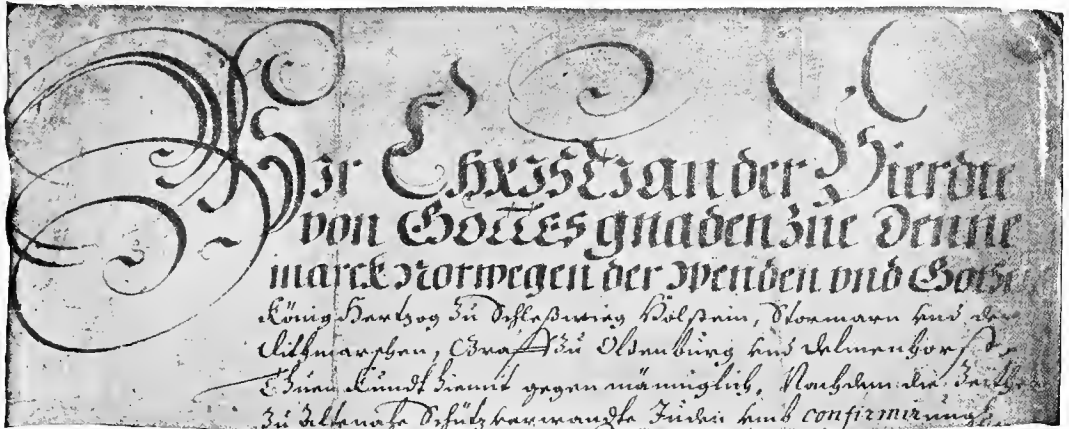 Wir Christian der Vierdte
von Gottes gnaden zue Denne
marck Norwegen der Wenden vnd Gothe
König Hertzog zu Schleßwieg Holstein, Stormarn vnd der
Dithmarschen, Graff zu Oldenburg vnd Delmenhorst,
Thuen kundt hiemit gegen männiglich, Nachdem die
zu Altenahe Schutzverwandte Juden vmb confirmirung